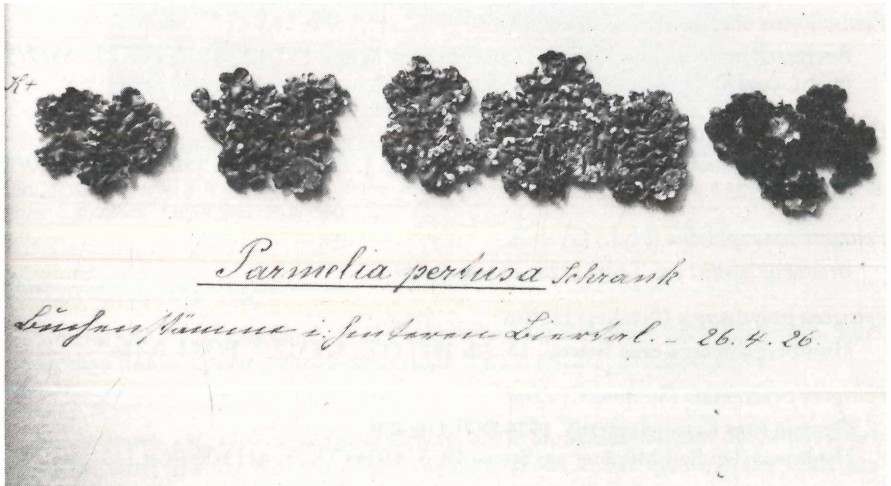 K+
Parmelia pertusa Schrank
Buchenstämme i. hinteren Biertal. – 26. 4. 26.